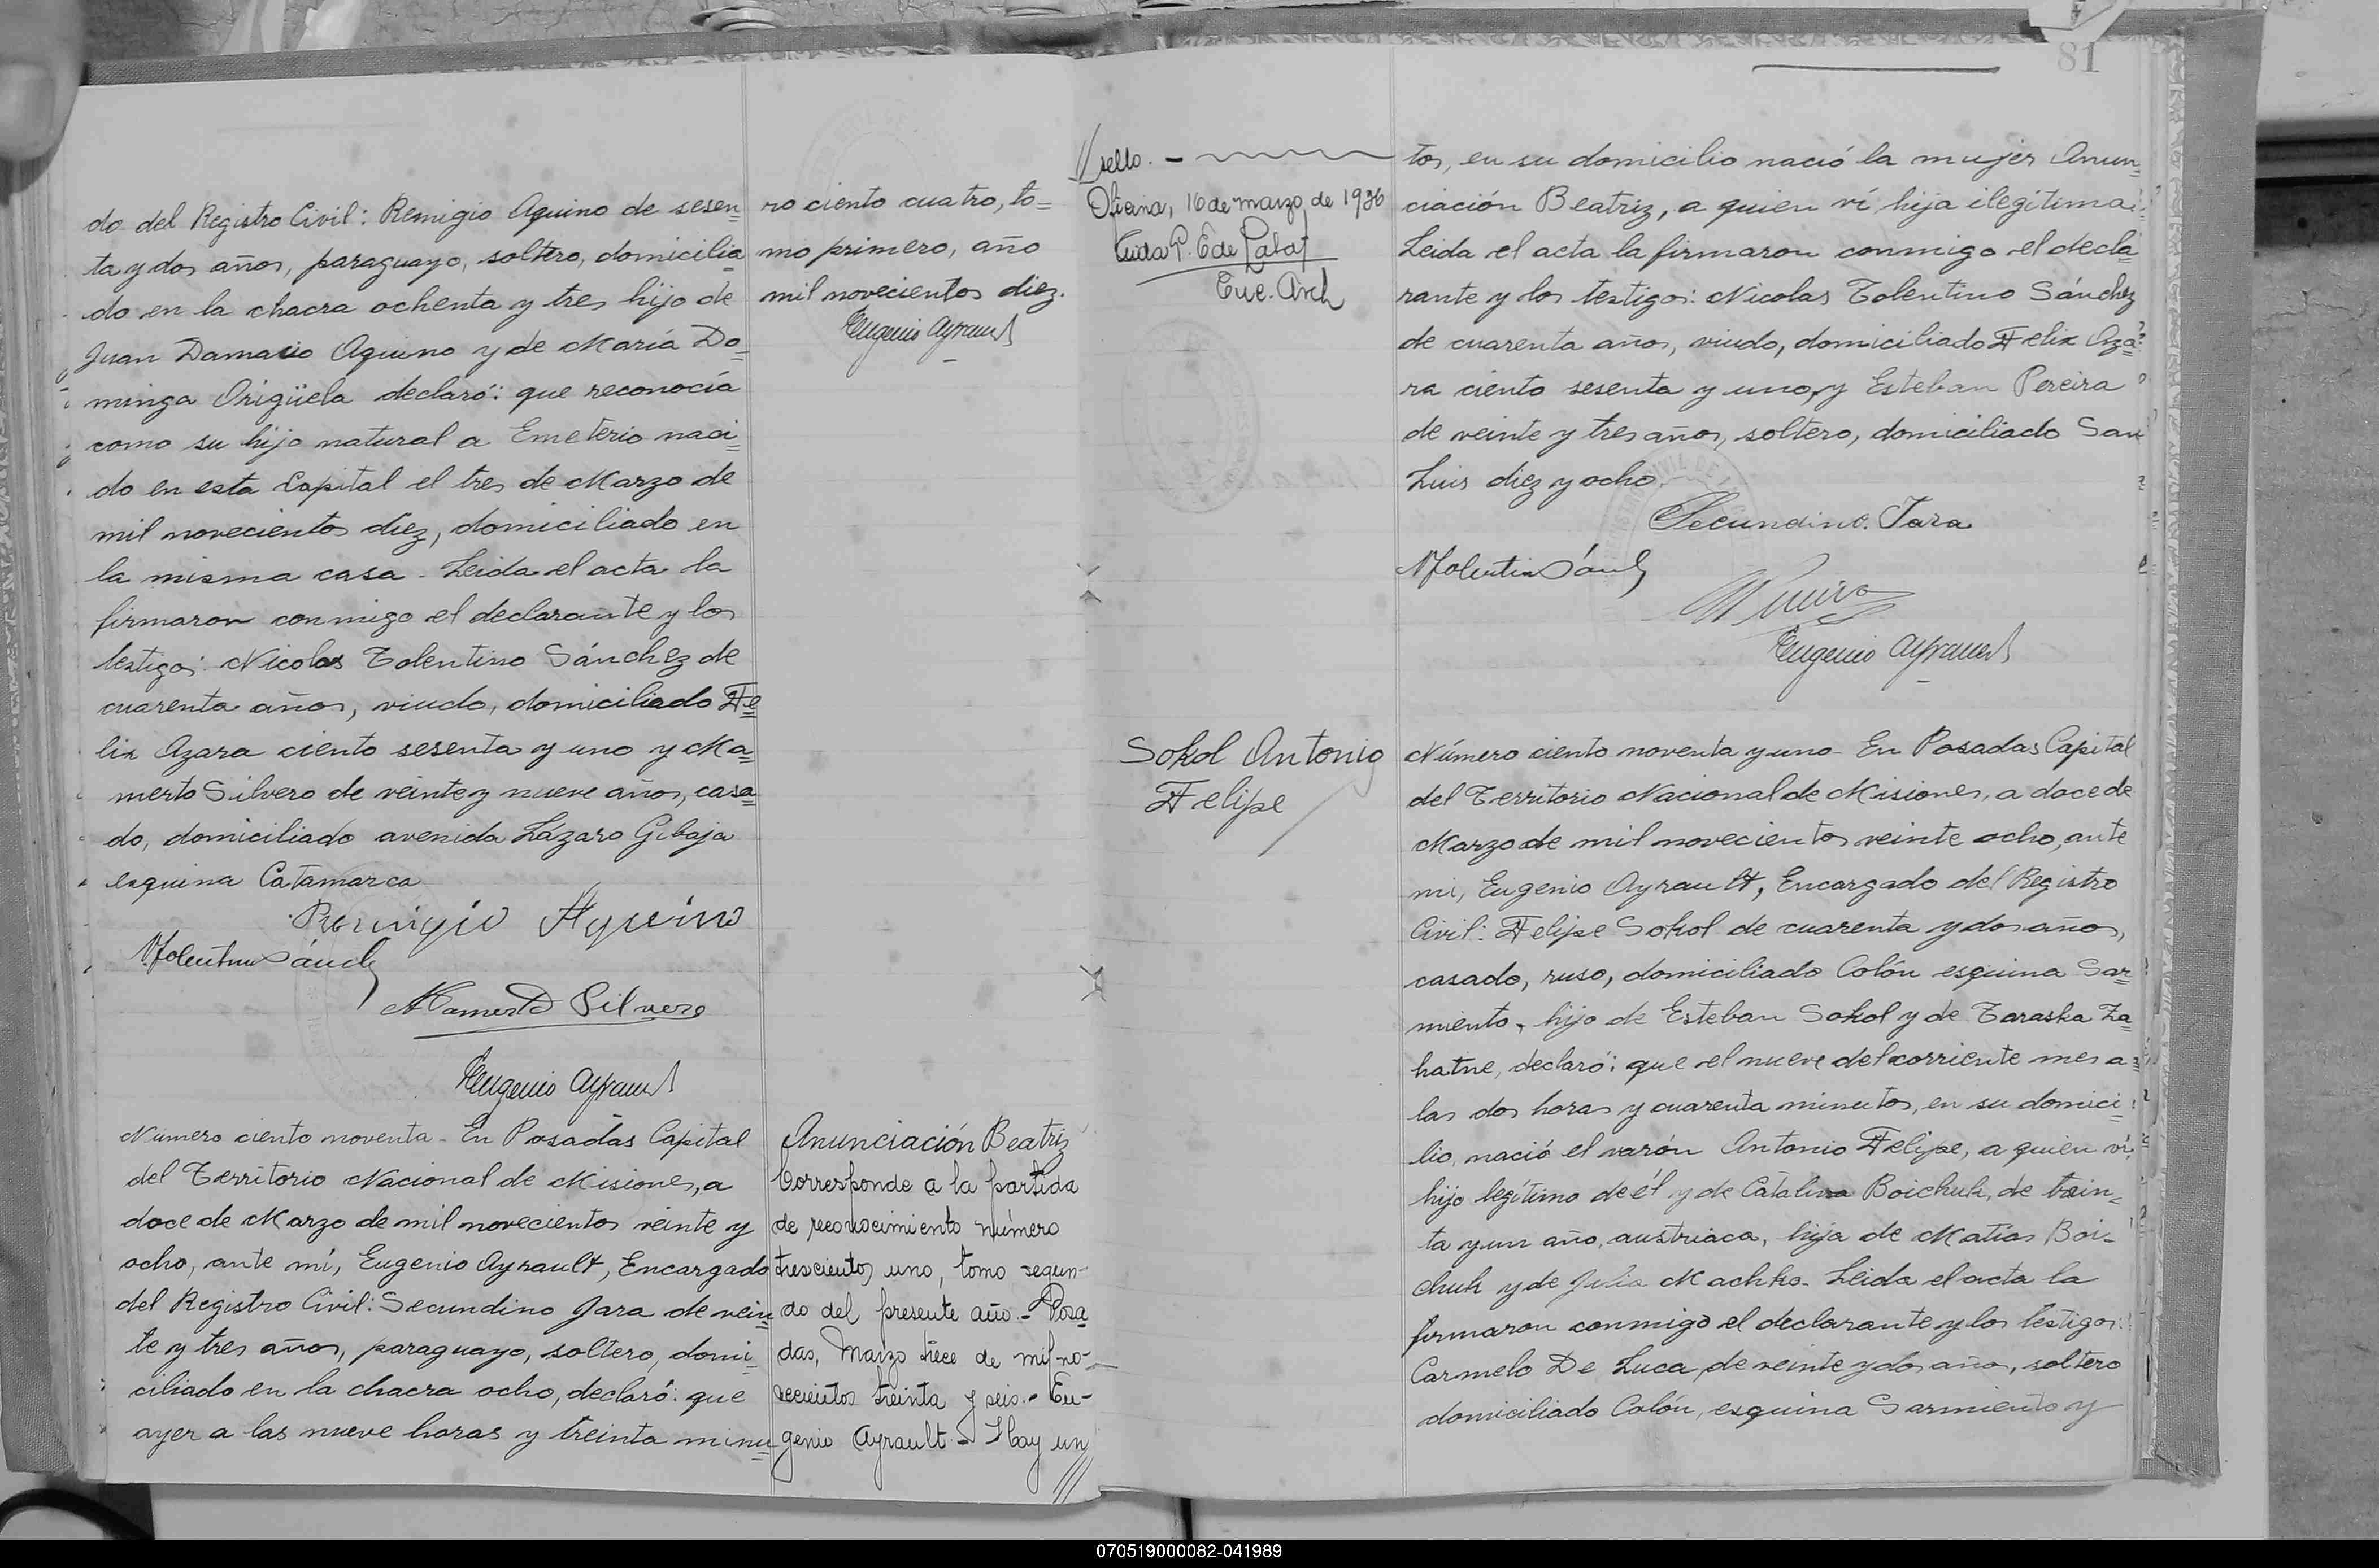 do del Registro Civil: Remigio Aquino de sesen=
ta y dos años, paraguayo, soltero, domicilia=
do en la chacra ochenta y tres hijo de
Juan Damacio Aquino y de María Do=
minga Origüela declaró: que reconocía
como su hijo natural a Emeterio naci=
do en esta Capital el tres de Marzo de
mil novecientos diez, domiciliado en
la misma casa. Leida el acta la
firmaron conmigo el declarante y los
testigos: Nicolas Tolentino Sánchez de
cuarenta años, viudo, domiciliado Fe=
lix Azara ciento sesenta y uno y Ma=
merto Silvero de veinte y nueve años, casa=
do, domiciliado avenida Lázaro Gibaja
esquina Catamarca
Remigio Aquino
NTolentino Sánch
Mamerto Silvero
Eugenio Ayrault
ro ciento cuatro, to=
mo primero, año
mil novecientos diez.
Eugenio Ayrault
Número ciento noventa - En Posadas Capital
del Territorio Nacional de Misiones, a
doce de Marzo de mil novecientos veinte y
ocho, ante mí, Eugenio Ayrault, Encargado
del Registro Civil: Secundino Jara de vein=
te y tres años, paraguayo, soltero, domi=
ciliado en la chacra ocho, declaró: que
ayer a las nueve horas y treinta minu=
Anunciación Beatriz
Corresponde a la partida
de reconocimiento número
trescientos uno, tomo segun-
do del presente año. - Posa=
das, Marzo trece de mil no-
vecientos treinta y seis. - Eu-
genio Ayrault. - Hay un
81
sello. -
Oficina, 16 de marzo de 1936
Enc. Arch
tos, en su domicilio nació la mujer Anun=
ciación Beatriz, a quien ví hija ilegítima.
Leida el acta la firmaron conmigo el decla=
rante y los testigos: Nicolas Tolentino Sánchez
de cuarenta años, viudo, domiciliado Felix Aza=
ra ciento sesenta y uno, y Esteban Pereira
de veinte y tres años, soltero, domiciliado San
Luis diez y ocho.
Secundino. Jara
NTolentino Sánch
Eugenio Ayrault
Sokol Antonio
Felipe
Número ciento noventa y uno - En Posadas Capital
del Territorio Nacional de Misiones, a doce de
Marzo de mil novecientos veinte ocho, ante
mi, Eugenio Ayrault, Encargado del Registro
Civil: Felipe Sokol de cuarenta y dos años,
casado, ruso, domiciliado Colón esquina Sar=
miento, hijo de Esteban Sokol y de Taraska Za=
hatne, declaró: que el nueve del corriente mes a
las dos horas y cuarenta minutos, en su domici=
lio, nació el varón Antonio Felipe, a quien ví
hijo legítimo de él y de Catalina Boichuk, de trein=
ta y un año, austriaca, hija de Matías Boi=
chuk y de Julia Machko. Leida el acta la
firmaron conmigo el declarante y los testigos:
Carmelo De Luca, de veinte y dos años, soltero
domiciliado Colón, esquina Sarmiento y
070519000082-041989